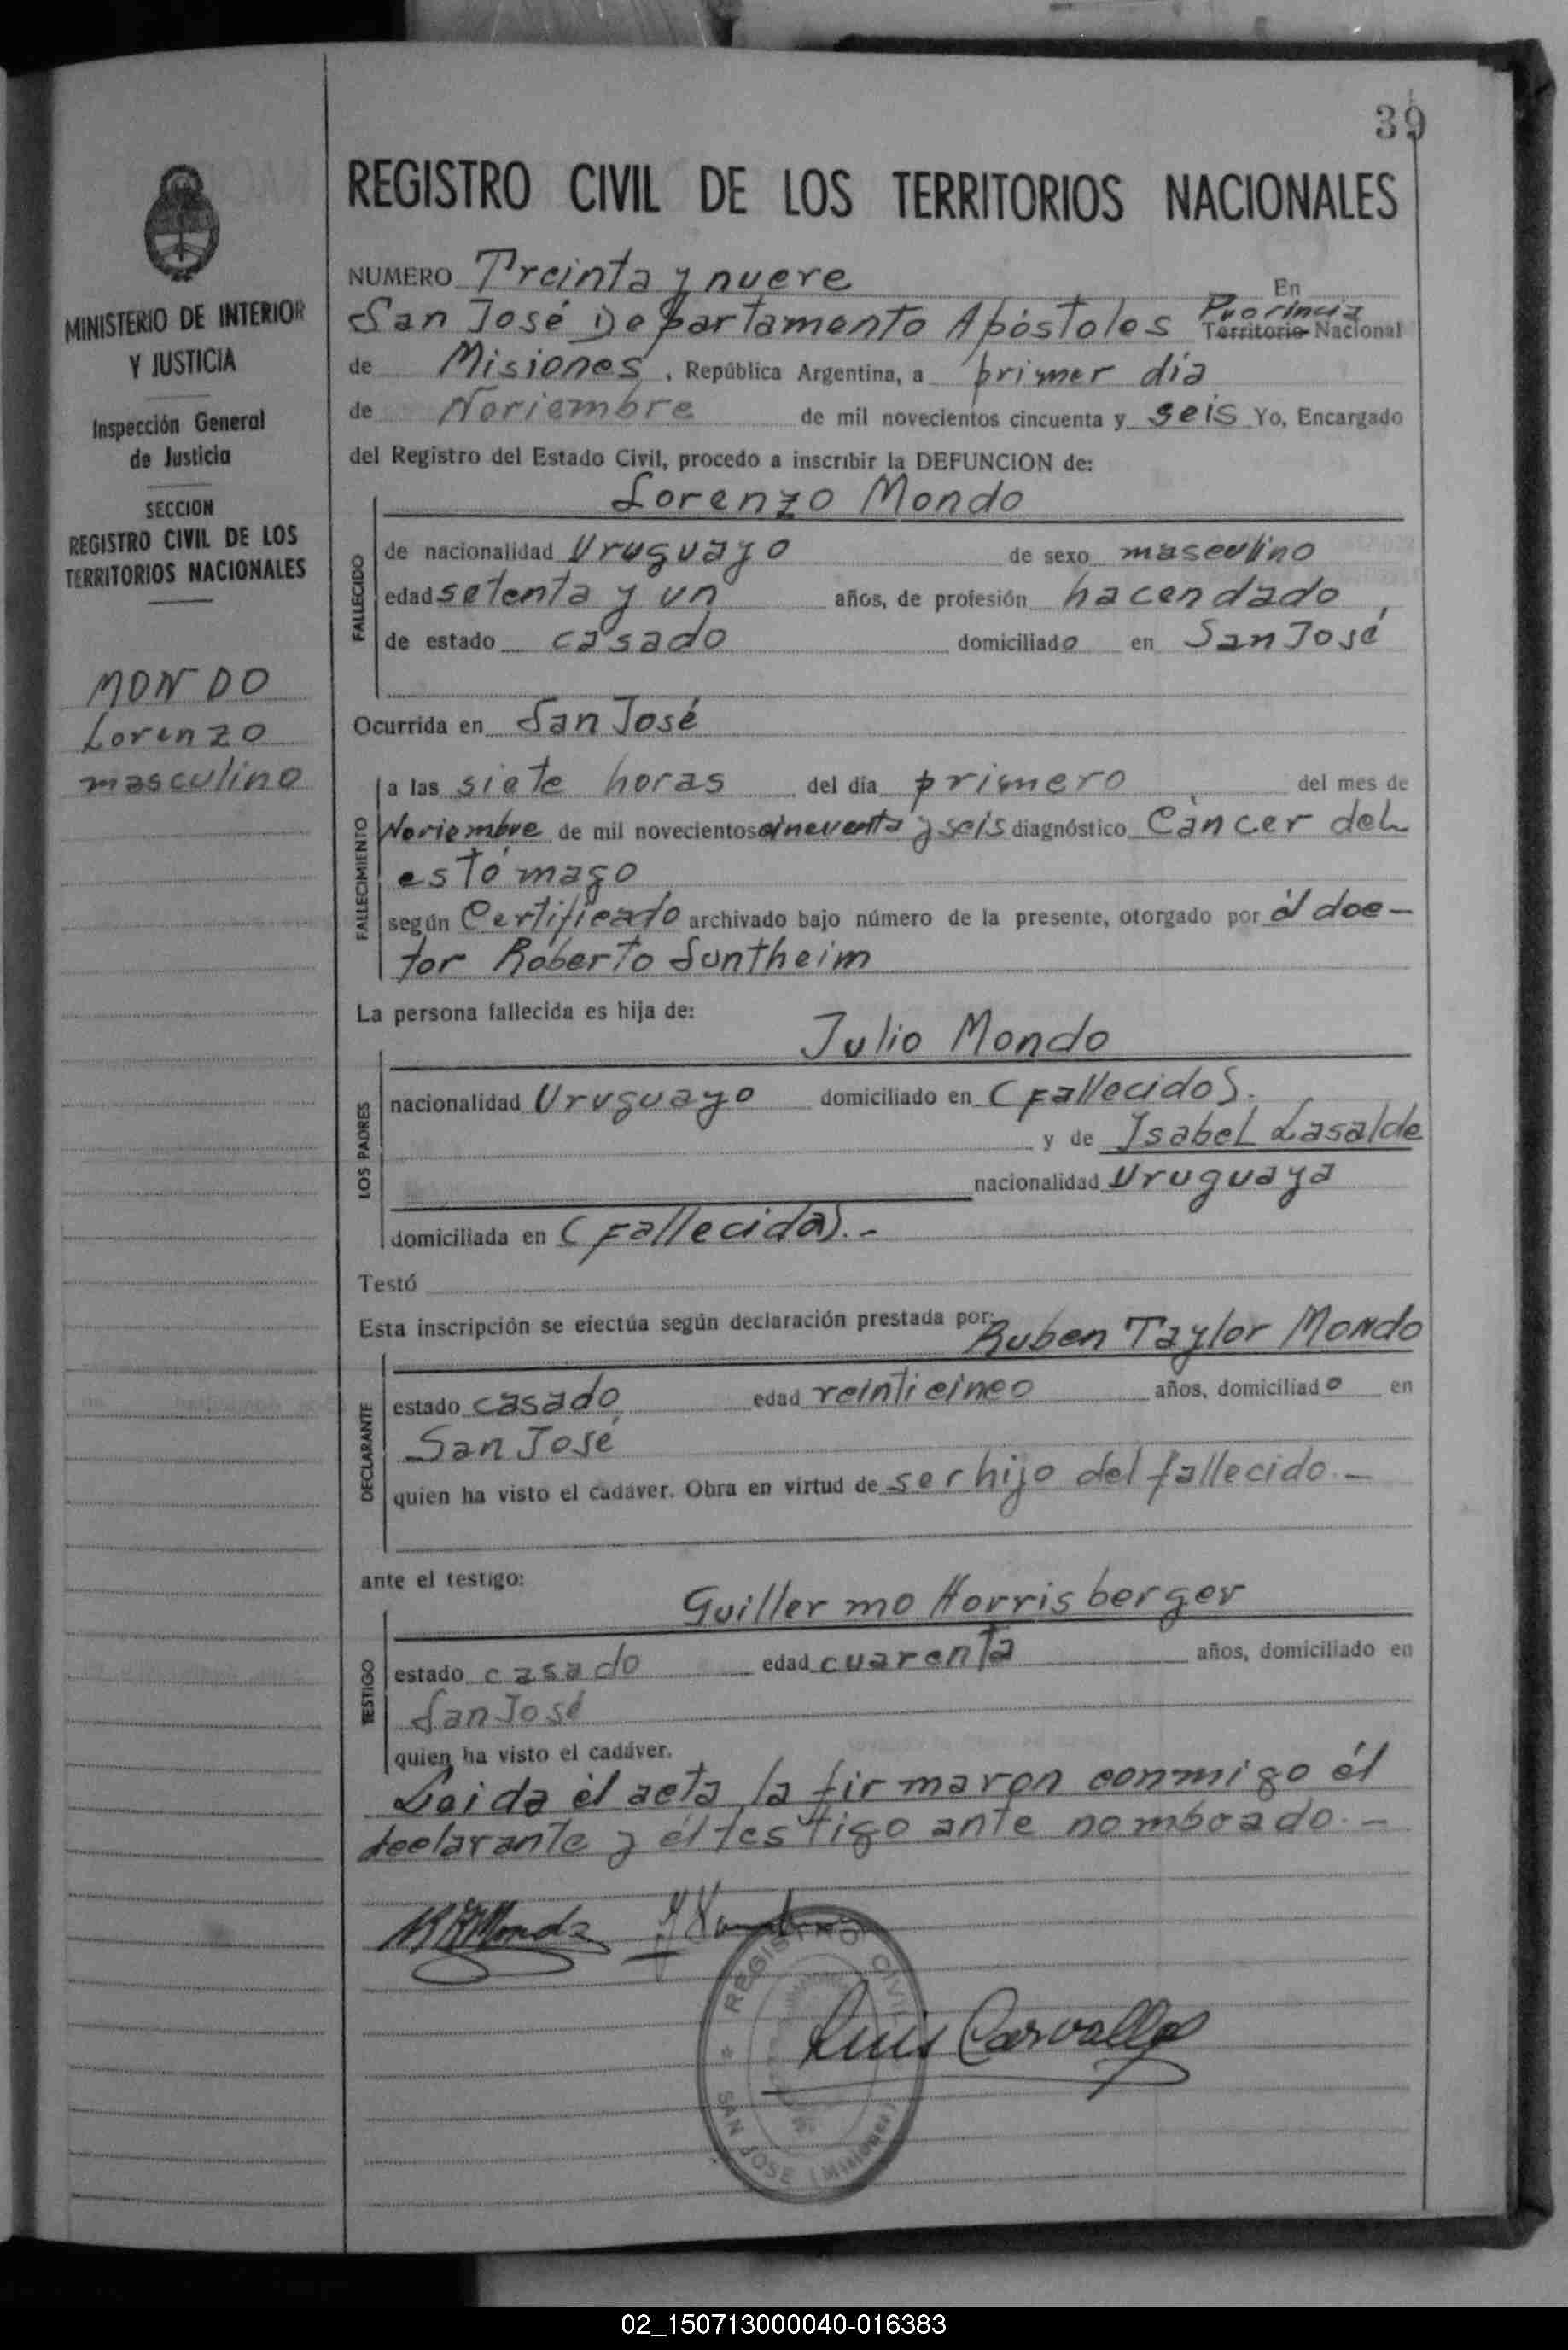 39
REGISTRO CIVIL DE LOS TERRITORIOS NACIONALES
MINISTERIO DE INTERIOR
Y JUSTICIA
Inspección General
de Justicia
SECCION
REGISTRO CIVIL DE LOS
TERRITORIOS NACIONALES
MONDO
Lorenzo
masculino
NUMERO Treinta y nueve En
San José Departamento Apóstoles Provincia Territorio Nacional
de Misiones, República Argentina, a primer día
de Noviembre de mil novecientos cincuenta y seis Yo, Encargado
del Registro del Estado Civil, procedo a inscribir la DEFUNCION de:
Lorenzo Mondo
FALLECIDO
de nacionalidad Uruguayo de sexo masculino
edad setenta y un años, de profesión hacendado,
de estado casado domiciliado en San José
Ocurrida en San José
FALLECIMIENTO
a las siete horas del día primero del mes de
Noviembre de mil novecientos cincuenta y seis diagnóstico Cáncer del
estómago
según Certificado archivado bajo número de la presente, otorgado por él doc-
tor Roberto Suntheim
La persona fallecida es hija de:
Julio Mondo
LOS PADRES
nacionalidad Uruguayo domiciliado en (Fallecido).
y de Isabel Lasalde
nacionalidad Uruguaya
domiciliada en (Fallecida).-
Testó
Esta inscripción se efectúa según declaración prestada por:
Ruben Taylor Mondo
DECLARANTE
estado casado edad veinticinco años, domiciliado en
San José
quien ha visto el cadáver. Obra en virtud de ser hijo del fallecido.-
ante el testigo:
Guillermo Horrisberger
TESTIGO
estado casado edad cuarenta años, domiciliado en
San José
quien ha visto el cadáver.
Leida él acta la firmaron conmigo él
declarante y él testigo ante nombrado.-
REGISTRO CIVIL
SAN JOSE (Misiones)
Luis Carvallo
02_150713000040-016383